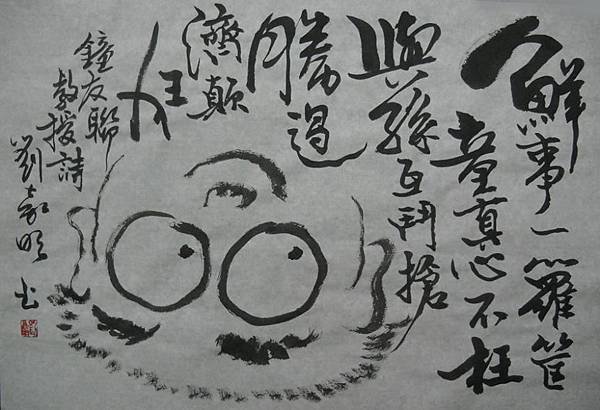 鮮事一籮筐
童真心不枉
與孫互鬥搶
勝過
濟顛
狂
鐘友聯
教授請
劉嘉明书